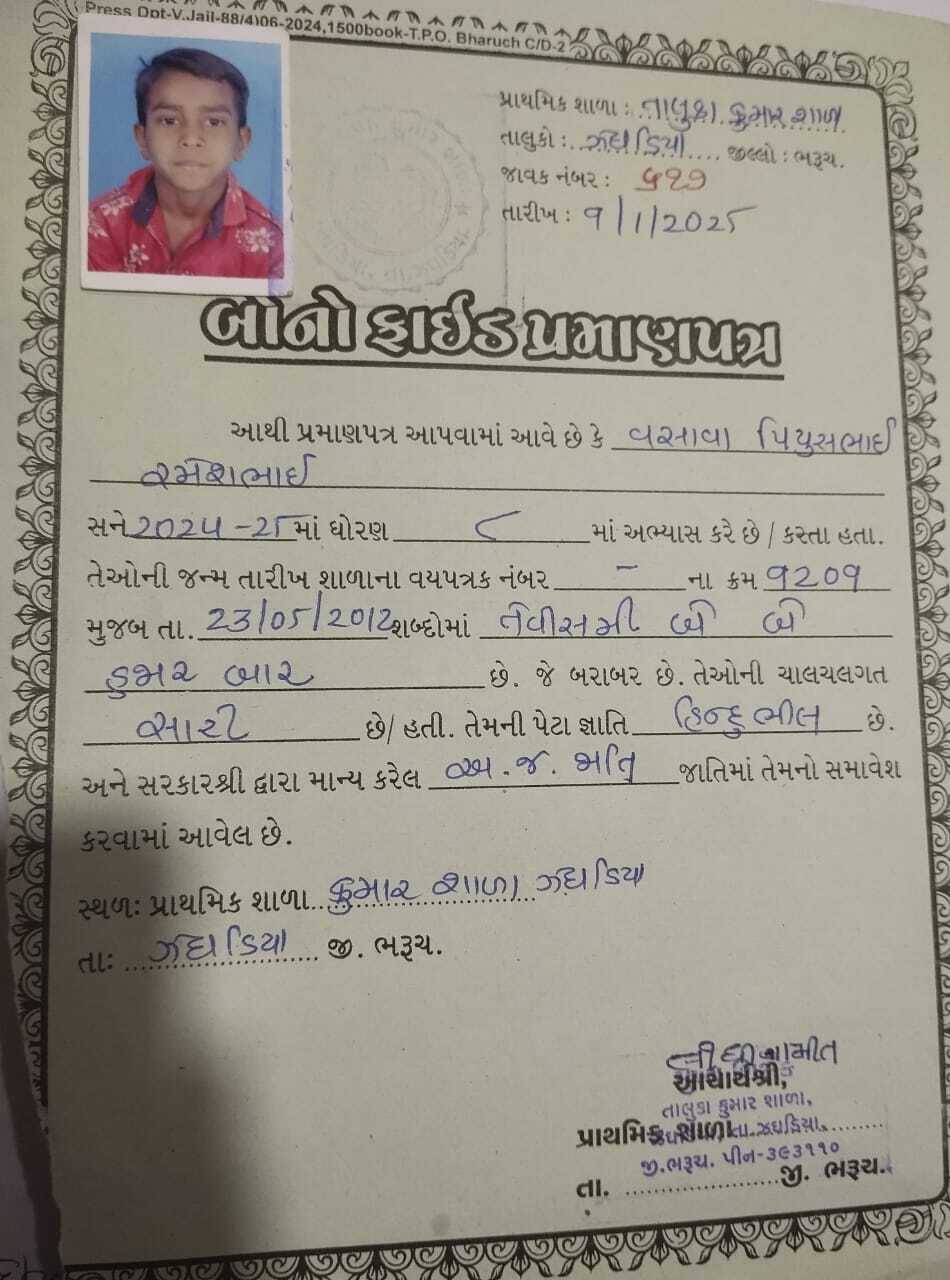 Press Dpt-V.Jail-88/4)06-2024,1500book-T.P.O. Bharuch C/D-2
પ્રાથમિક શાળા : તાલુકા કુમાર શાળા
તાલુકો : ઝઘડિયા જીલ્લો : ભરૂચ.
જાવક નંબર : ૬૧૭
તારીખ : ૧/1/2025
બોનોફાઈડ પ્રમાણપત્ર
આથી પ્રમાણપત્ર આપવામાં આવે છે કે વસાવા પિયુસભાઈ
રમેશભાઈ
સને 2024-25 માં ધોરણ ૮ માં અભ્યાસ કરે છે / કરતા હતા.
તેઓની જન્મ તારીખ શાળાના વયપત્રક નંબર - ના ક્રમ ૧2૦૧
મુજબ તા. 23/05/2012 શબ્દોમાં તેવીસમી મે બે
હજાર બાર છે. જે બરાબર છે. તેઓની ચાલચલગત
સારી છે/ હતી. તેમની પેટા જ્ઞાતિ હિન્દુ ભીલ છે.
અને સરકારશ્રી દ્વારા માન્ય કરેલ અ.જ. જાતિ જાતિમાં તેમનો સમાવેશ
કરવામાં આવેલ છે.
સ્થળ: પ્રાથમિક શાળા કુમાર શાળા ઝઘડિયા
તા: ઝઘડિયા જી. ભરૂચ.
આચાર્યશ્રી,
તાલુકા કુમાર શાળા,
પ્રાથમિક શાળા તા. ઝઘડિયા
જી.ભરૂચ. પીન-૩૯૩૧૧૦
તા. જી. ભરૂચ.